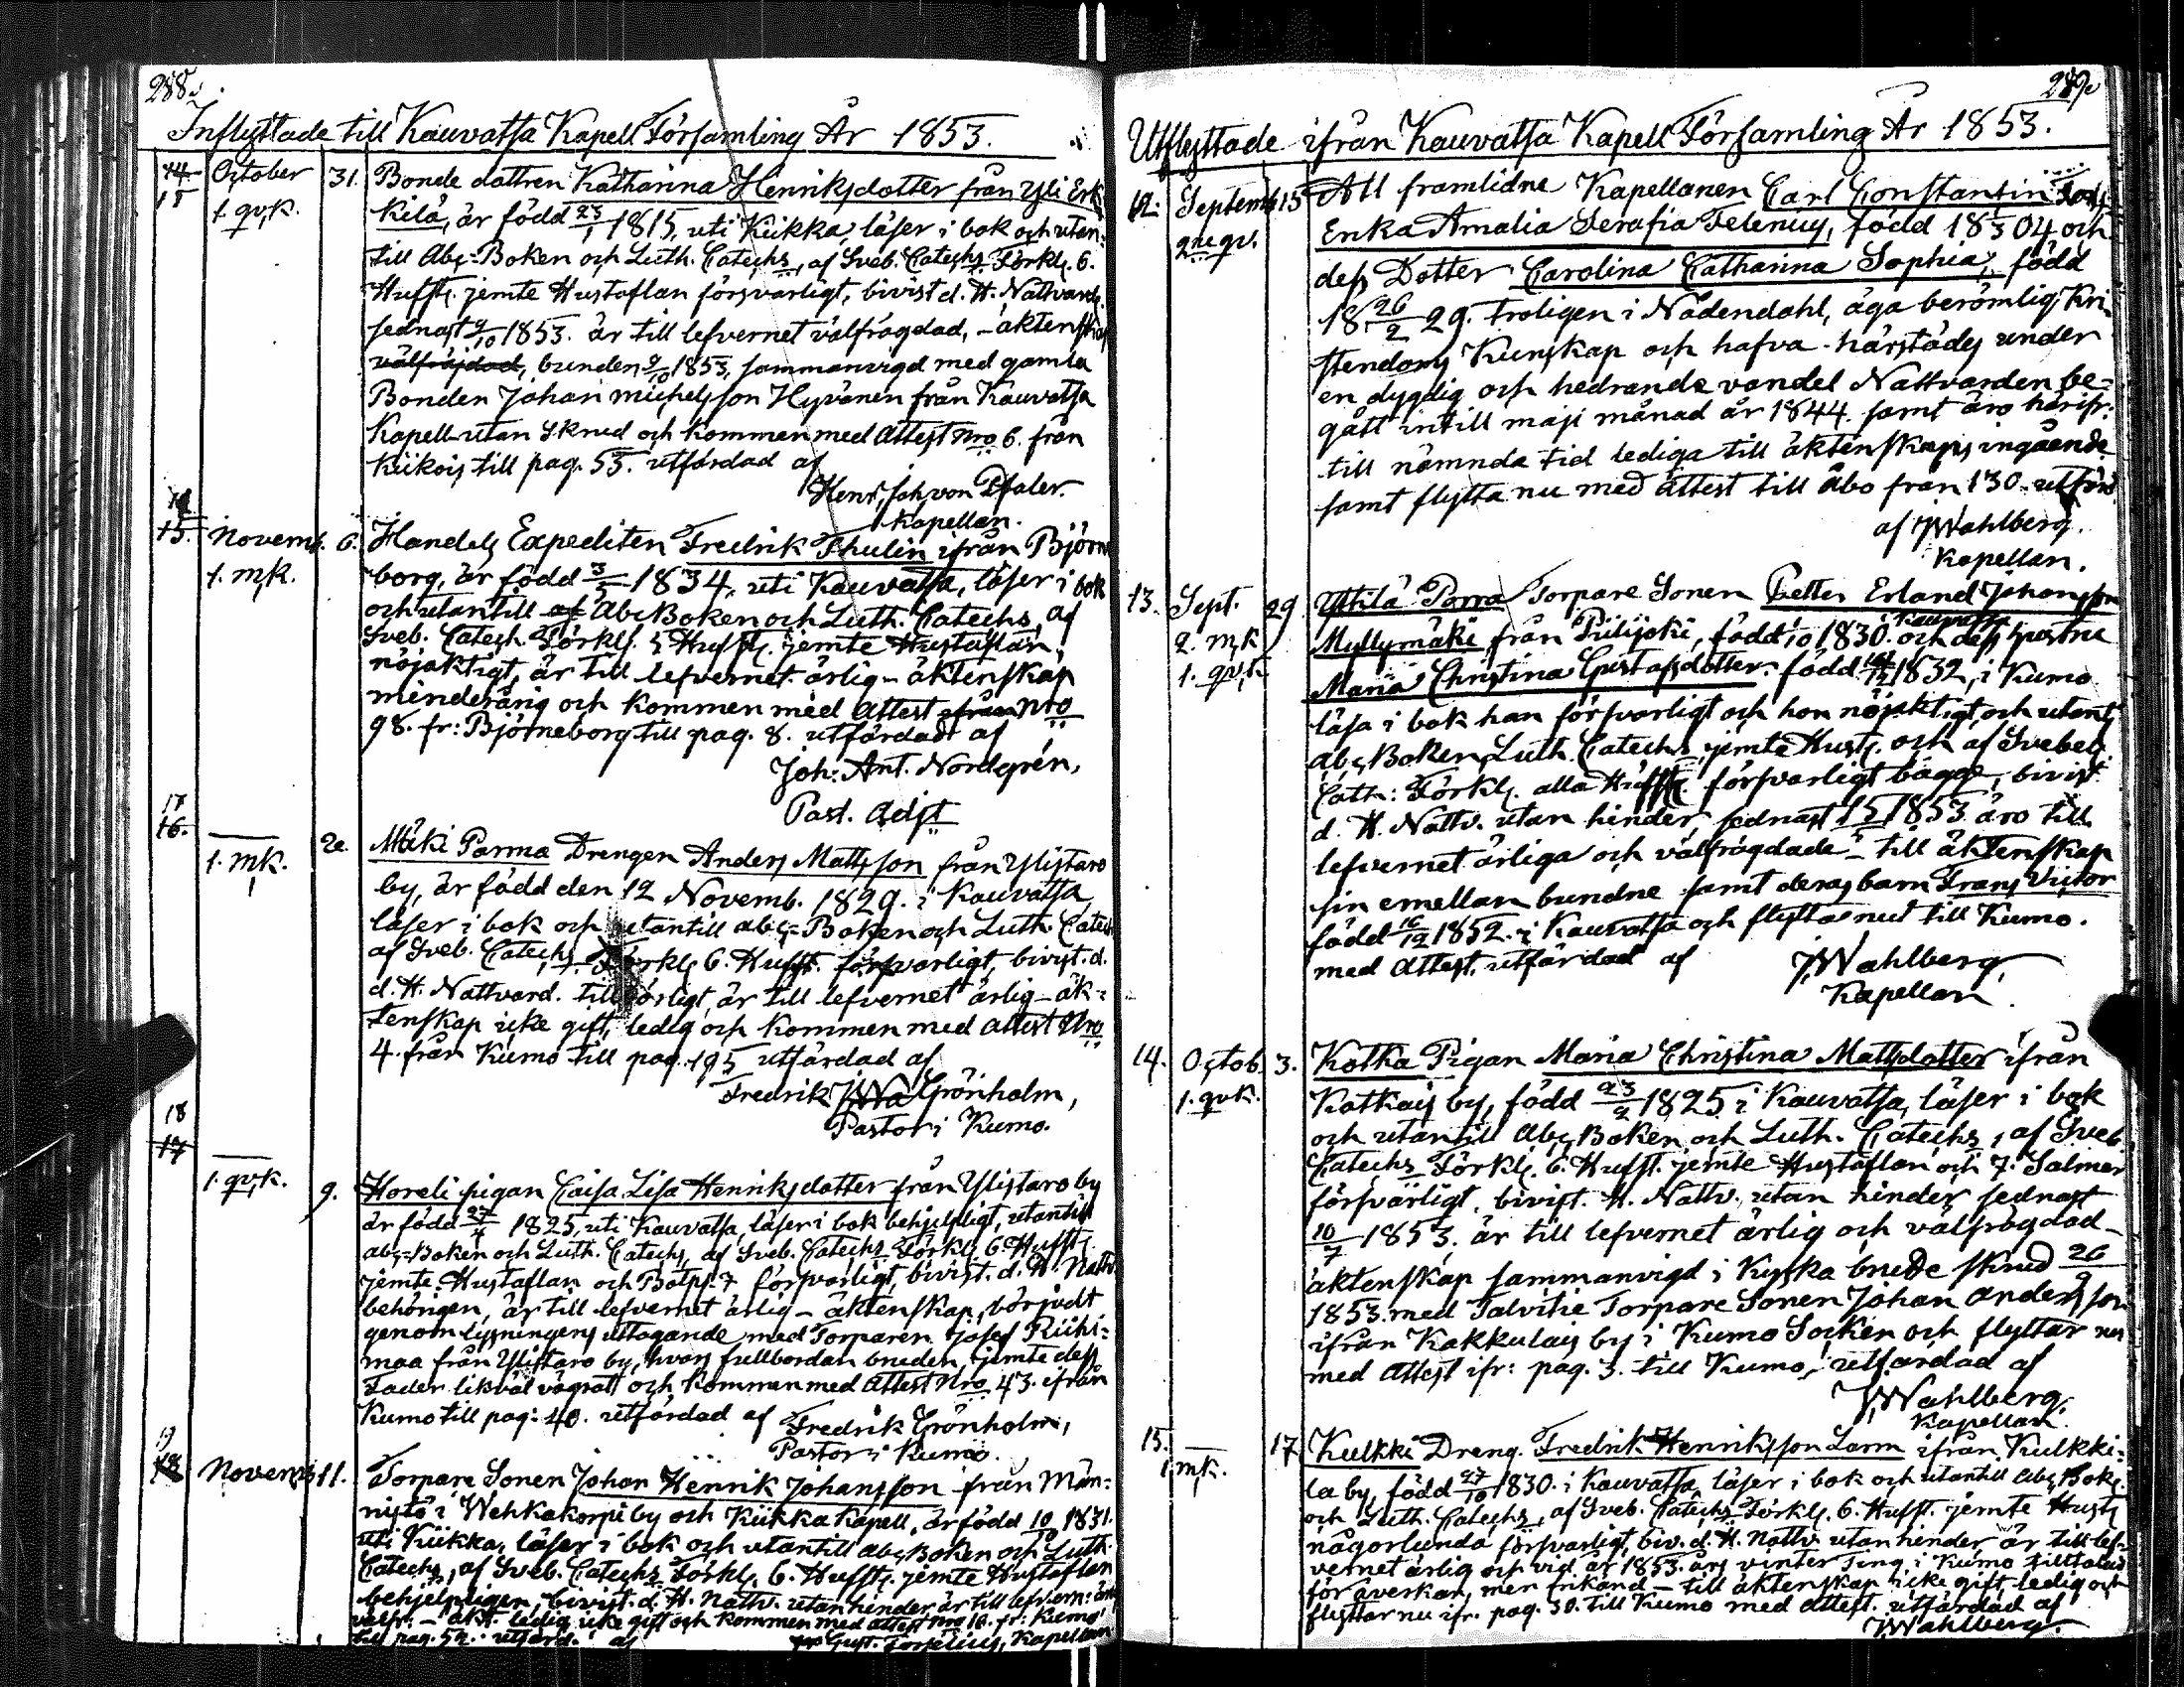 288.
Inflyttade till Kauvatsa Kapell Församling År 1853.
14. October 31. Bonde dottren Katharina Henriksdotter från Yli Erk
15 1. qvk. kilä, är född 23/1 1815, uti Kiikka, läser i bok och utan-
till Abc-Boken och Luth. Catechs, af Sveb. Catechs Förkl. 6.
Hufft. jemte Hustaflan försvarligt, bivist d. H. Nattvard
sednast 9/10 1853. är till lefvernet välfrägdad, - äktenskap
välfräjdad, bunden 9/10 1853, sammanvigd med gamla
Bonden Johan Michelsson Hyvönen från Kauvatsa
Kapell utan skrud och kommen med attest Nro 6. från
Kiikois till pag. 55. utfärdad af
Henr. Joh. von Pfaler.
Kapellan.
15. Novemb. 6. Handels Expediten Fredrik Thulin ifrån Björne
1. mk. borg, är född 3/5 1834, uti Kauvatsa, läser i bok
och utantill af Abc Boken och Luth. Catechs, af
Sveb. Catech. Förkls. 5 Hufft. jemte Hustaflan,
nöjaktigt, är till lefvernet ärlig - äktenskap
minderårig och kommen med attest ifrån Nro
98. fr: Björneborg till pag. 8. utfärdadt af
Joh: Ant. Nordgrén,
Past. Adjt
17
16. 20. Mäki Parma Drengen Anders Mattsson från Ylistaro
1. mk. by, är född den 12 Novemb. 1829. i Kauvatsa,
läser i bok och utantill abc-Boken och Luth. Catech
af Sveb. Catechs Förkls 6. Hufft. försvarligt, bivist. d.
d. H. Nattvard. till börligt, är till lefvernet ärlig - äk-
tenskap icke gift, ledig och kommen med attest Nro
4. från Kumo till pag. 195 utfärdad af
Fredrik Grönholm,
Pastor i Kumo.
18
17
1. qvk. 9. Horeli pigan Caisa Lisa Henriksdotter från Ylistaro by
är född 27/4 1825, uti Kauvatsa, läser i bok behjelpligt, utantill
abc-Boken och Luth. Catechs, af Sveb. Catechs Förkls 6. Hufft.
jemte Hustaflan och Botps. 7 försvarligt, bivist. d. H. Nattv.
behörigen, är till lefvernet ärlig - äktenskap, börjadt
genom lysningens uttagande med Torparen Josef Riihi-
maa från Ylistaro by, hvars fullbordan bruden, jemte dess
Fader likväl vägrat och kommen med attest Nro 43. ifrån
Kumo till pag: 40. utfärdad af Fredrik Grönholm,
Pastor i Kumo.
19
18 Novemb 11. Torpare Sonen Johan Henrik Johansson från Män-
nistö i Wehkakorpi by och Kiikka Kapell, är född 10/10 1831.
uti Kiikka, läser i bok och utantill abc Boken och Luth.
Catechs, af Sveb. Catechs Förkls, 6. Hufft. jemte Hustaflan
behjelpligen, bivist. d. H. Nattv. utan hinder är till lefvern: ärl
välfr. - äkt. ledig icke gift och kommen med attest Nro 16. fr. Kumo
till pag. 52. utfärd. af Gust. Forselius, Kapellan
289.
Utflyttade ifrån Kauvatsa Kapell Församling År 1853.
12. Septemb 15 Att framlidne Kapellanen Carl Constantin
2ne qv. Enka Amalia Serafia Telenius, född 18 3/5 04 och
dess Dotter Carolina Catharina Sophia, född
18 26/2 29. troligen i Nådendahl, äga berömlig Kri-
stendoms Kunskap och hafva härstädes under
en dygdig och hedrande vandel Nattvarden be-
gått intill maji månad år 1844. samt äro härifr:
till nämnda tid lediga till äktenskaps ingående
samt flytta nu med attest till Åbo från 130. utfärd
af JWahlberg.
Kapellan.
13. Sept. 29 Yttilä Porra Torpare Sonen Petter Erland Johansson
Kauvatsa
2. mk Myllymäki från Piilijoki, född 10 1830. och dess hustru
1. qvk Maria Christina Gustafsdotter. född 1832, i Kumo
läsa i bok han försvarligt och hon nöjaktigt, och utant
abc Boken, Luth. Catechs, jemte Hust. och af Svebel.
Cath: Förkls. alla Hufft. försvarligt bägge, bivist
d. H. Nattv. utan hinder sednast 15/5 1853. äro till
lefvernet ärliga och välfrägdade - till äktenskap
sin emellan bundne samt deras barn Frans Victor
född 16/12 1852. i Kauvatsa och flytta nu till Kumo.
med attest utfärdad af JWahlberg,
Kapellan.
14. Octob. 3. Kotka Pigan Maria Christina Mattsdotter ifrån
1. qvk. Katkais by, född 23/9 1825 i Kauvatsa, läser i bok
och utantill Abc Boken och Luth. Catechs, af Sveb
Catechs Förkls. 6. Hufft. jemte Hustaflan och 7. Salmer
försvarligt, bivist. H. Nattv. utan hinder sednast
10/7 1853. är till lefvernet ärlig och välfrägdad -
äktenskap sammanvigd i Kyrka brude skrud 26/9
1853. med Talvitie Torpare Sonen Johan Andersson
ifrån Kakkulais by i Kumo Socken och flyttar nu
med attest ifr: pag. 3. till Kumo, utfärdad af
JWahlberg.
Kapellan.
15. 17 Kulkki Dreng. Fredrik Henriksson Larm ifrån Kulkki-
1 mk. la by, född 27/10 1830. i Kauvatsa, läser i bok och utantill Abc Bok.
och Luth. Catechs, af Sveb. Catechs Förkls. 6. Hufft. jemte Hust
någorlunda försvarligt, biv. d. H. Nattv. utan hinder, är till lef-
vernet ärlig och vid år 1853. års vinter Ting i Kumo tilltalad
för åverkan, men frikänd - till äktenskap icke gift, ledig och
flyttar nu ifr. pag. 30. till Kumo med attest. utfärdad af
JWahlberg.